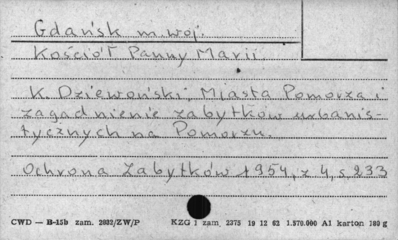 Gdańsk m. woj.
Kościół Panny Marii
K. Dziewoński, Miasta Pomorza i
zagadnienie zabytków urbanis-
tycznych na Pomorzu.
Ochrona Zabytków 1954, z 4, s 233
CWD — B-15b zam. 2032/ZW/P KZG 1 zam. 2375 19 12 62 1.570.000 A1 karton 180 g